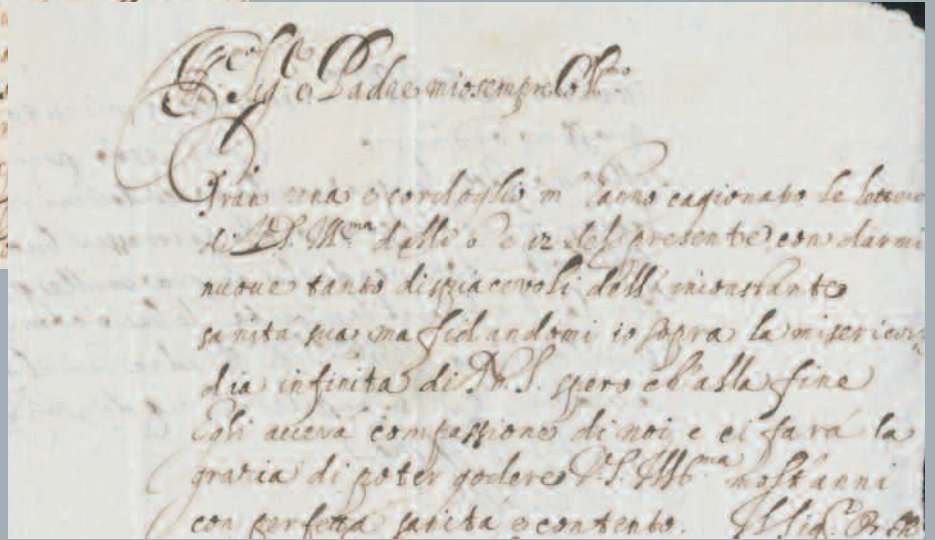 Sig.r e Padre mio sempre Col.mo
Gran pena e cordoglio m' hanno cagionato le lettere
di V.S. Ill.ma dalli 9 e 12 del presente con darmi
nuove tanto dispiacevoli dell' inconstante
sanita sua ma fidandomi io sopra la misericor
dia infinita di N.S. spero ch' alla fine
Egli avera compassione di noi e ci fará la
gratia di poter godere V.S. Ill.ma molt' anni
con perfetta sanita e contento. Il Sig.